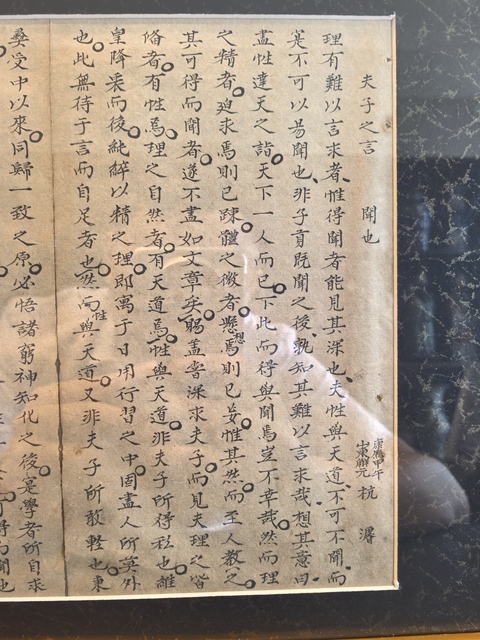 夫子之言 聞也
康熙甲午
山東解元
杭濬
理有難以言求者惟得聞者能見其深也夫性與天道不可不聞而
寔不可以易聞也非子貢既聞之後孰知其難以言求哉想其意曰
盡性達天之詣天下一人而已下此而得與聞焉豈不幸哉然而理
之精者迫求焉則已踈體之微者懸想焉則已妄惟其然而至人教之
其可得而聞者遂不盡如文章矣賜蓋嘗深求夫子而見夫理之皆
俻者有性焉理之自然者有天道焉性與天道非夫子所得私也維
皇降衷而後純粹以精之理即寓于日用行習之中固盡人所莫外
也此無待于言而自足者也然而性與天道又非夫子所敢輕也秉
彝受中以來同歸一致之原必悟諸窮神知化之後寔學者所自求